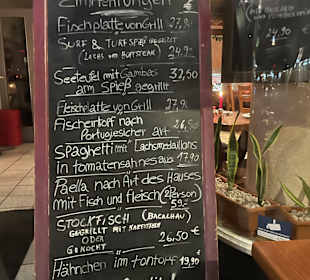 Empfehlungen
Fischplatte von Grill 27,9
SURF & TURFSPIEß GEGRILLT
(LACHS UND RUMPSTEAK) 24,90
Seeteufel mit Gambas 32,50
am Spieß gegrillt
Fleischplatte von Grill 27,9
Fischeintopf nach
Portugiesicher art 26,50
Spaghetti mit Lachsmedaillons
in tomatensahnesaus 17,90
Paella nach Art des Hauses
mit Fisch und fleisch (2 Person)
59,-
STOCKFISCH (BACALHAU)
GEGRILLT MIT KARTOFFELN
ODER
GEKOCHT 26,50 €
Hähnchen im tontopf 19,90
24,90 €